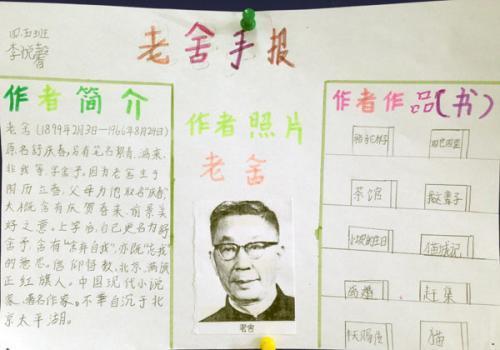 四五班
李悦馨
老舍手报
作者简介
老舍(1899年2月3日—1966年8月24日)
原名舒庆春,另有笔名絜青、鸿来、
非我等,字舍予。因为老舍生于
阴历立春,父母为他取名"庆春",
大概含有庆贺春来、前景美
好之意。上学后,自己更名为舒
舍予,含有"舍弃自我",亦即"忘我"
的意思。信仰基督教,北京、满族
正红旗人。中国现代小说
家、著名作家。不幸自沉于北
京太平湖。
作者照片
老舍
老舍
作者作品(书)
骆驼祥子
四世同堂
茶馆
这辈子
小坡的生日
猫城记
赶集
猫